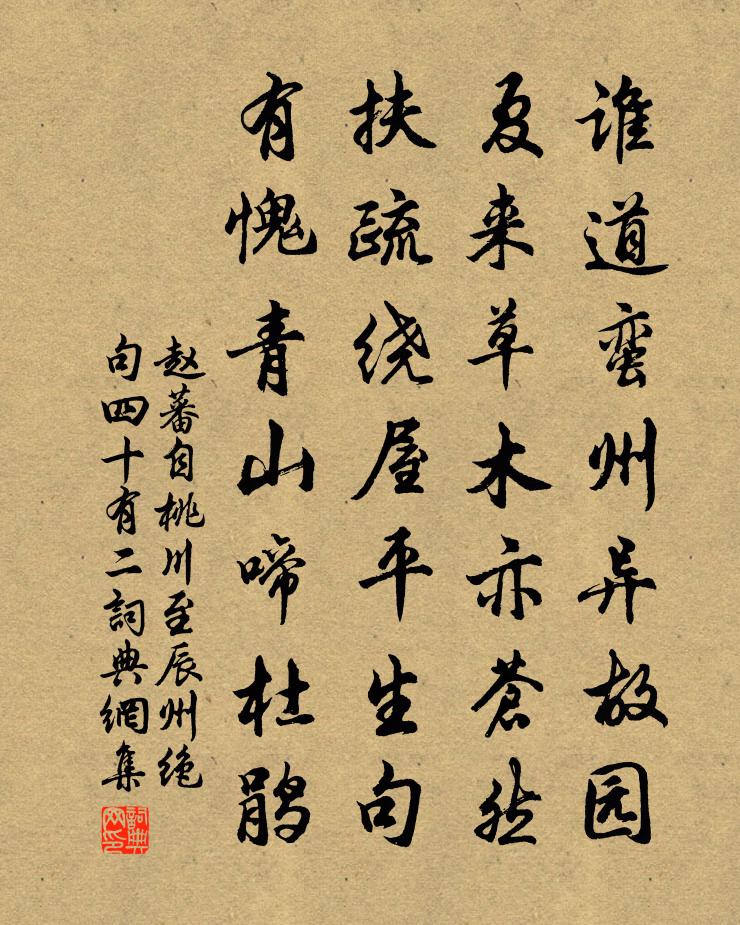 谁道蛮州异故园
夏来草木亦苍然
扶疏绕屋平生句
有愧青山啼杜鹃
赵蕃自桃川至辰州绝
句四十有二詞典網集
詞典
网印